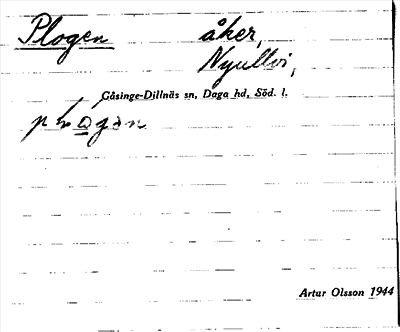 Plogen åker,
Nyullvi,
Gåsinge-Dillnäs sn, Daga hd, Söd. l.
Artur Olsson 1944